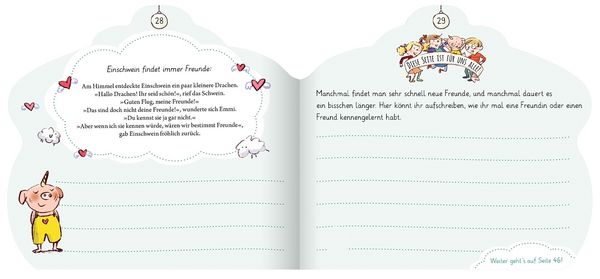 28
Einschwein findet immer Freunde:
Am Himmel entdeckte Einschwein ein paar kleinere Drachen.
»Hallo Drachen! Ihr seid schön!«, rief das Schwein.
»Guten Flug, meine Freunde!«
»Das sind doch nicht deine Freunde!«, wunderte sich Emmi.
»Du kennst sie ja gar nicht.«
»Aber wenn ich sie kennen würde, wären wir bestimmt Freunde«,
gab Einschwein fröhlich zurück.
29
Diese Seite ist für uns alle!
Manchmal findet man sehr schnell neue Freunde, und manchmal dauert es
ein bisschen länger. Hier könnt ihr aufschreiben, wie ihr mal eine Freundin oder einen
Freund kennengelernt habt.
Weiter geht's auf Seite 46!